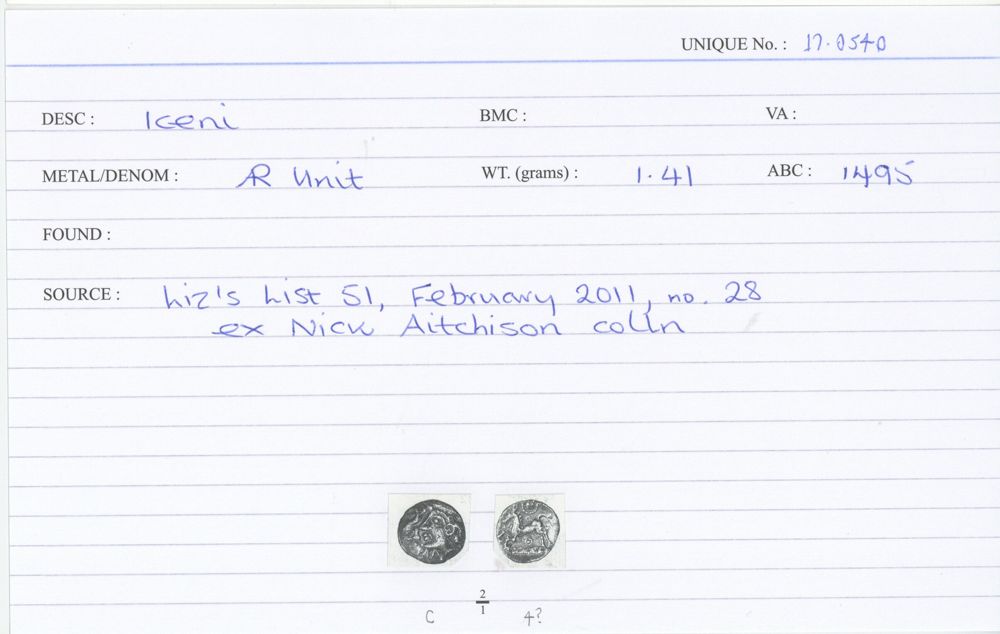 UNIQUE No. : 17.0540
DESC : Iceni BMC : VA :
METAL/DENOM : AR Unit WT. (grams) : 1.41 ABC : 1495
FOUND :
SOURCE : Liz's List 51, February 2011, no. 28
ex Nick Aitchison colln
2
1
C 4?